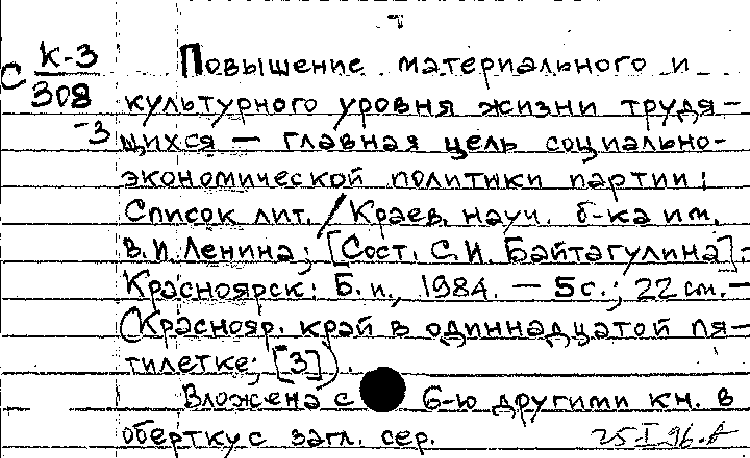 С К-3
308
-3
Повышение материального и
культурного уровня жизни трудя-
щихся — главная цель социально-
экономической политики партии:
Список лит. / Краев. науч. б-ка им.
В.И. Ленина; [Сост. С.И. Байтагулина].-
Красноярск: Б.и., 1984. — 5 с.; 22 см.—
(Краснояр. край в одиннадцатой пя-
тилетке; [3]).
Вложена с 6-ю другими кн. в
обертку с загл. сер.
25 I 96.